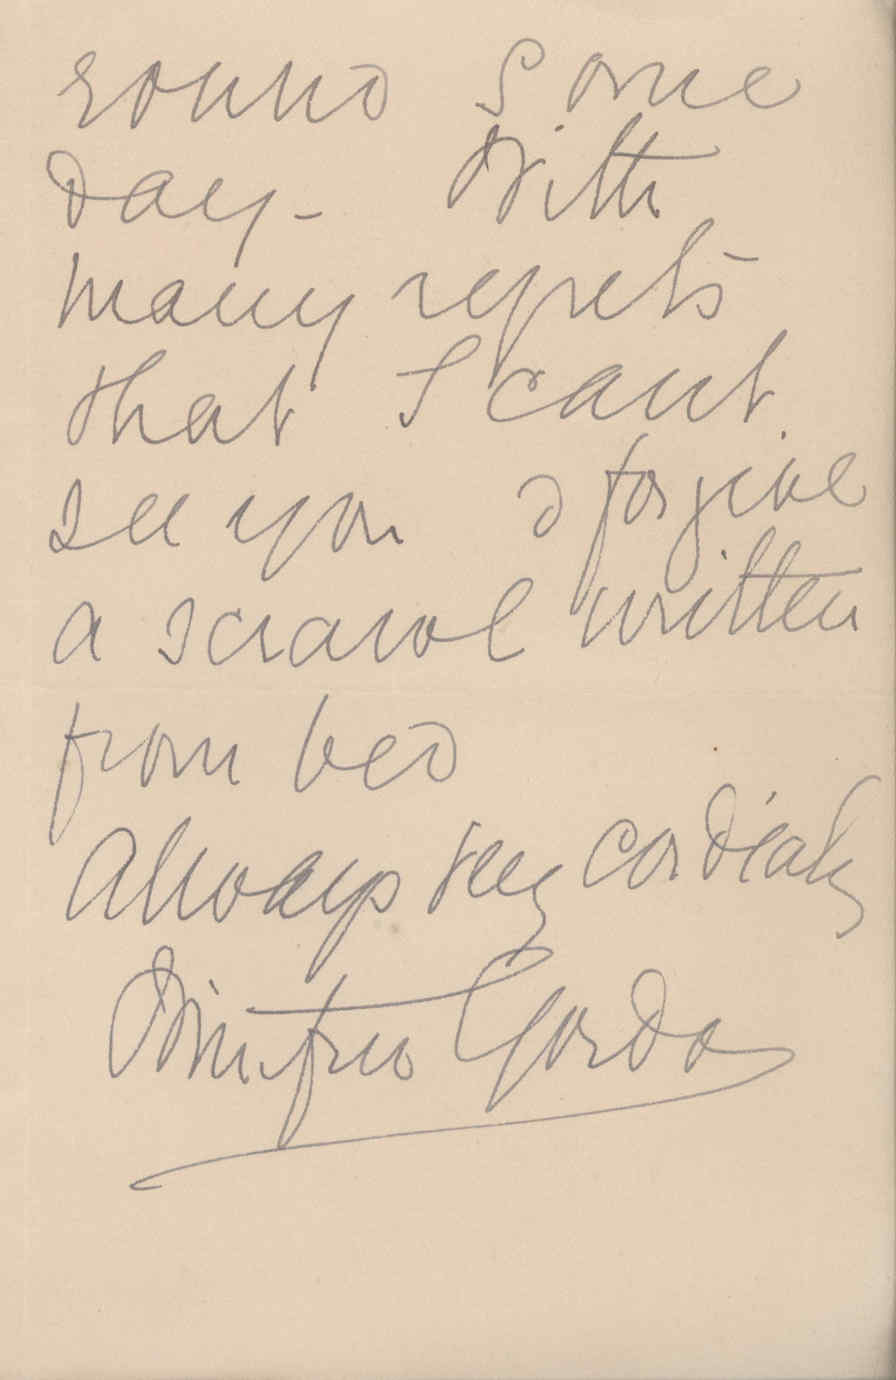 round some
day - With
many regrets
that I cant
see you & forgive
a scrawl written
from bed
Always very cordially
Winifred Gordon